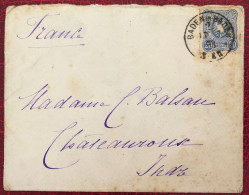 France
BADEN-BADEN
Madame C. Balsan
Châteauroux
Indre